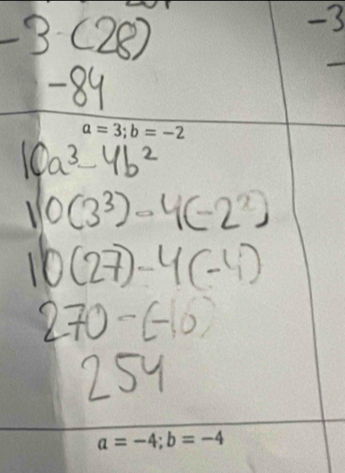 -3 (28)
-3
-84
a = 3; b = -2
10a³-4b²
10(3³)-4(-2²)
10(27)-4(-4)
270-(-16)
254
a = -4; b = -4